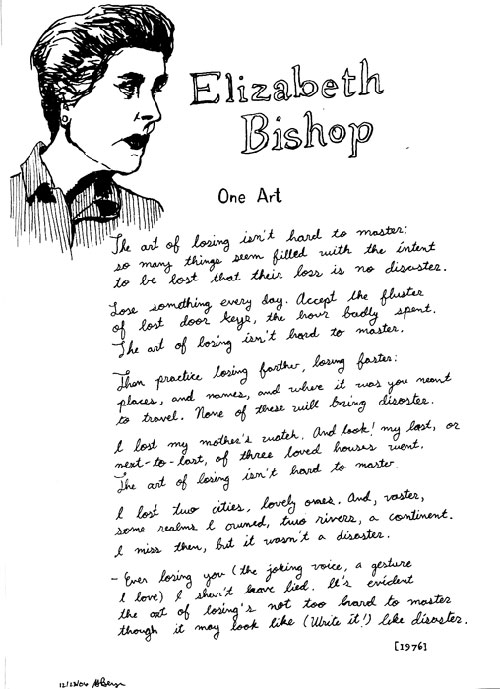 Elizabeth
Bishop
One Art
The art of losing isn't hard to master:
so many things seem filled with the intent
to be lost that their loss is no disaster.
Lose something every day. Accept the fluster
of lost door keys, the hour badly spent.
The art of losing isn't hard to master.
Then practice losing farther, losing faster:
places, and names, and where it was you meant
to travel. None of these will bring disaster.
I lost my mother's watch. And look! my last, or
next-to-last, of three loved houses went.
The art of losing isn't hard to master.
I lost two cities, lovely ones. And, vaster,
some realms I owned, two rivers, a continent.
I miss them, but it wasn't a disaster.
- Even losing you (the joking voice, a gesture
I love) I shan't have lied. It's evident
the art of losing's not too hard to master
though it may look like (Write it!) like disaster.
[1976]